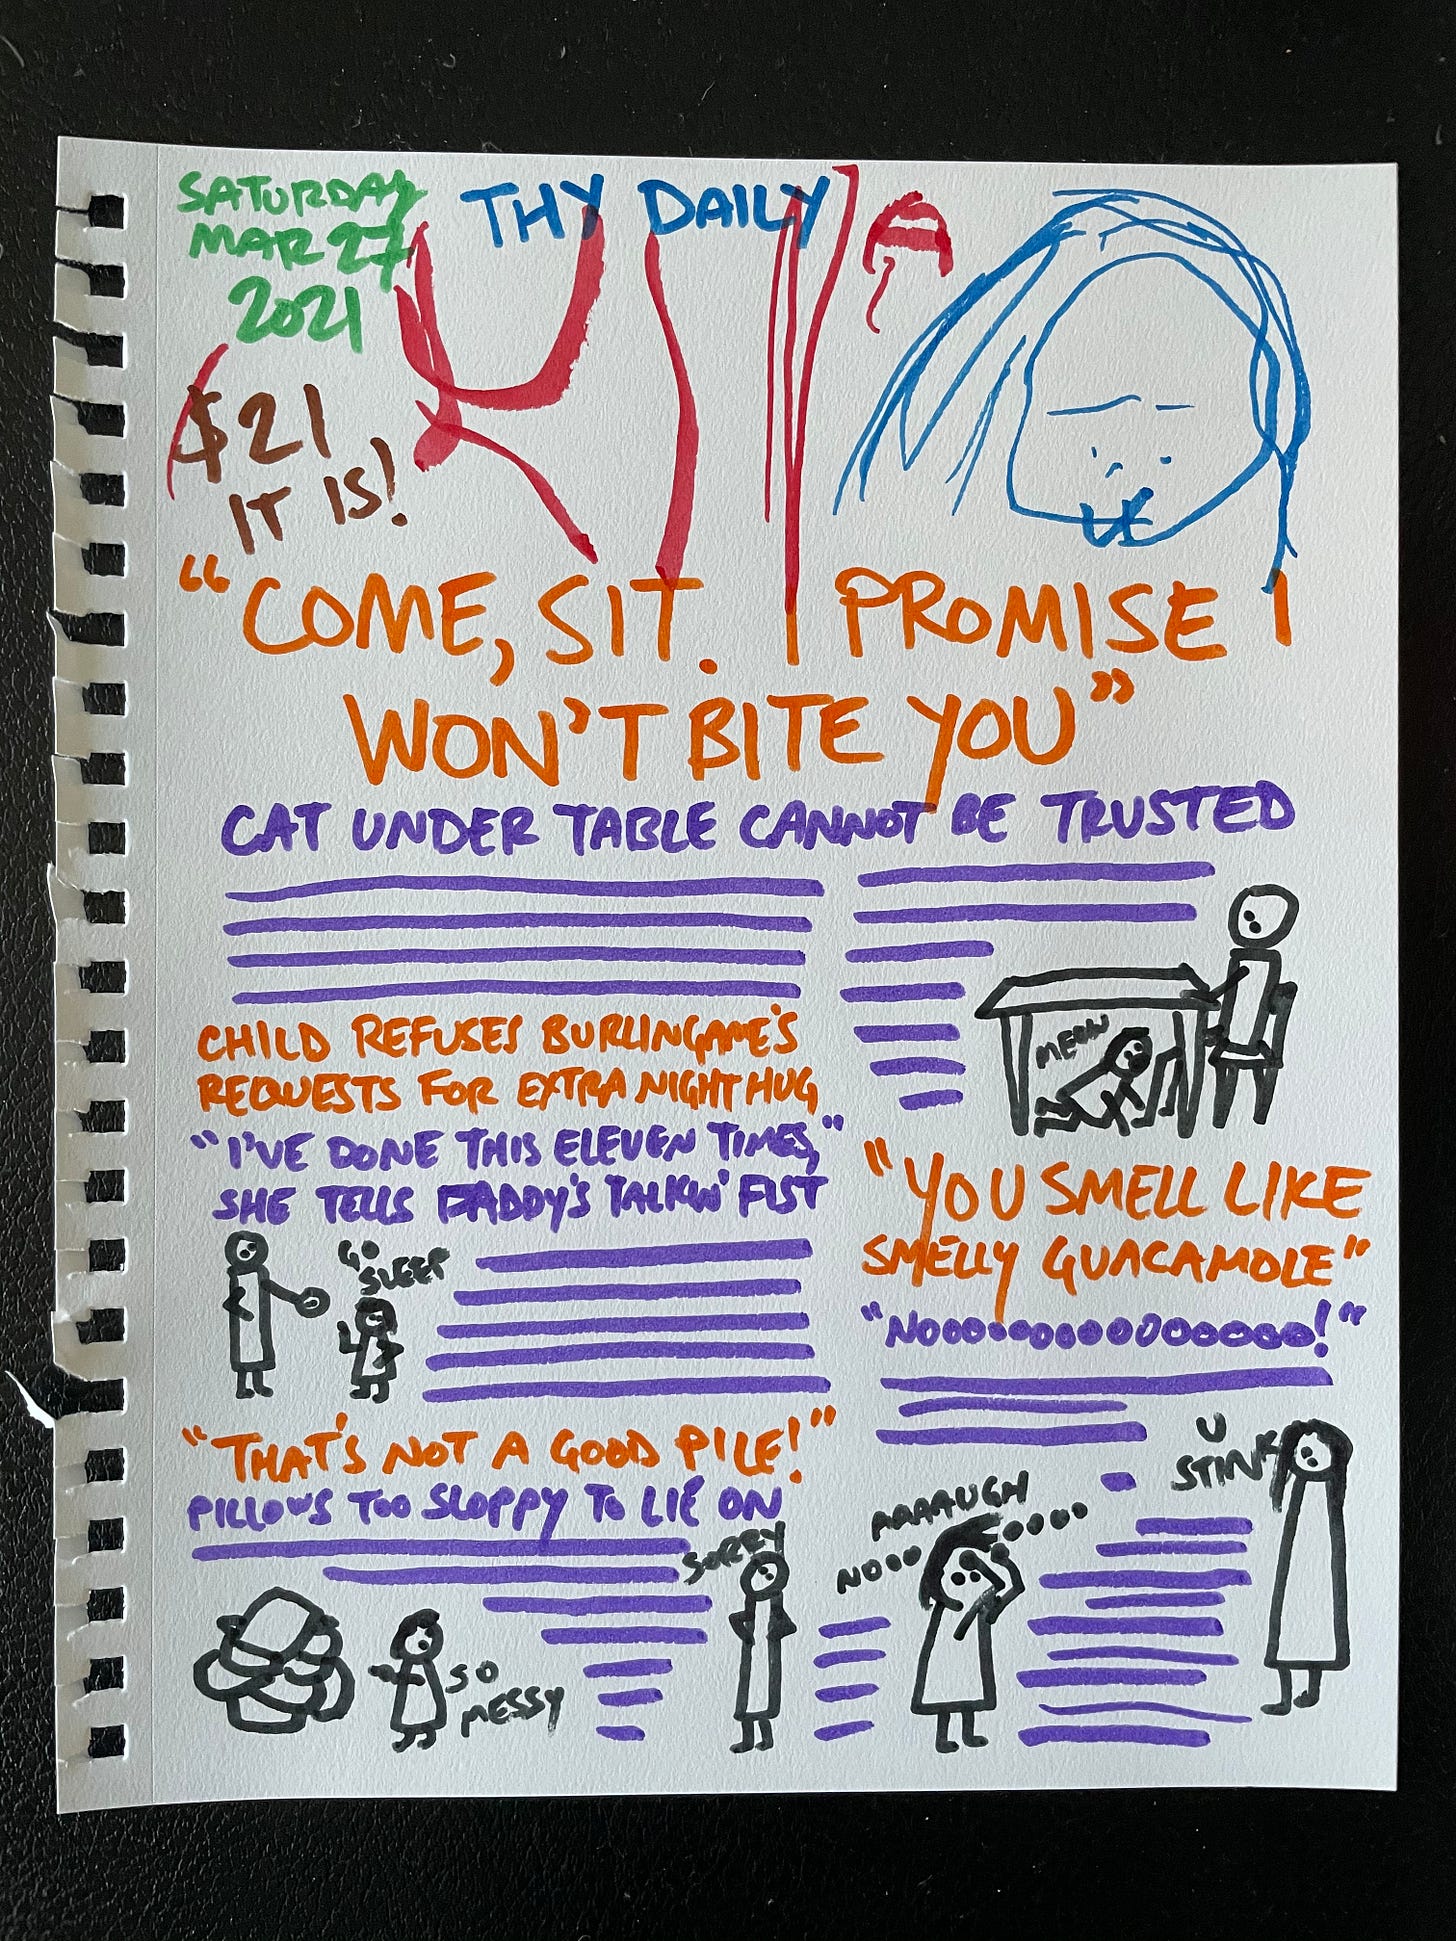 SATURDAY
MAR 27
2021
THY DAILY
$21
IT IS!
"COME, SIT. I PROMISE I
WON'T BITE YOU"
CAT UNDER TABLE CANNOT BE TRUSTED
MEOW
CHILD REFUSES BURLINGAME'S
REQUESTS FOR EXTRA NIGHT HUG
"I'VE DONE THIS ELEVEN TIMES,"
SHE TELLS DADDY'S TALKIN' FIST
GO
SLEEP
"THAT'S NOT A GOOD PILE!"
PILLOWS TOO SLOPPY TO LIE ON
SO
MESSY
SORRY
"YOU SMELL LIKE
SMELLY GUACAMOLE"
"NOOOOOOOOOOOOOOO!"
U
STINK
AAAAUGH
NOOO OOOO